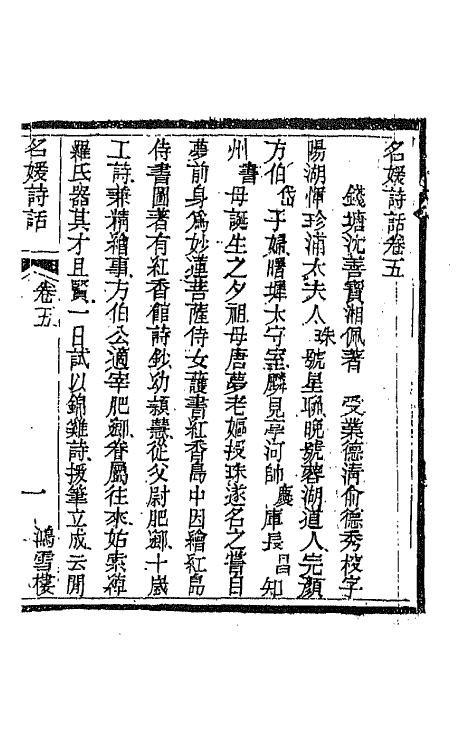 名媛詩話卷五
錢塘沈善寶湘佩著　受業德清俞德秀校字
陽湖惲珍浦太夫人珠號星聯晚號蓉湖道人完顏
方伯岱子婦曙墀太守室麟見亭河帥慶庫長昌知
州書母誕生之夕祖母唐夢老嫗授珠遂名之嘗自
夢前身為妙蓮菩薩侍女護書紅香島中因繪紅島
侍書圖著有紅香館詩鈔幼頴慧從父尉肥鄉十歲
工詩兼精繪事方伯公適宰肥鄉眷屬往來姑索綽
羅氏器其才且賢一日試以錦雞詩援筆立成云閒
名媛詩話　卷五　一　鴻雪樓